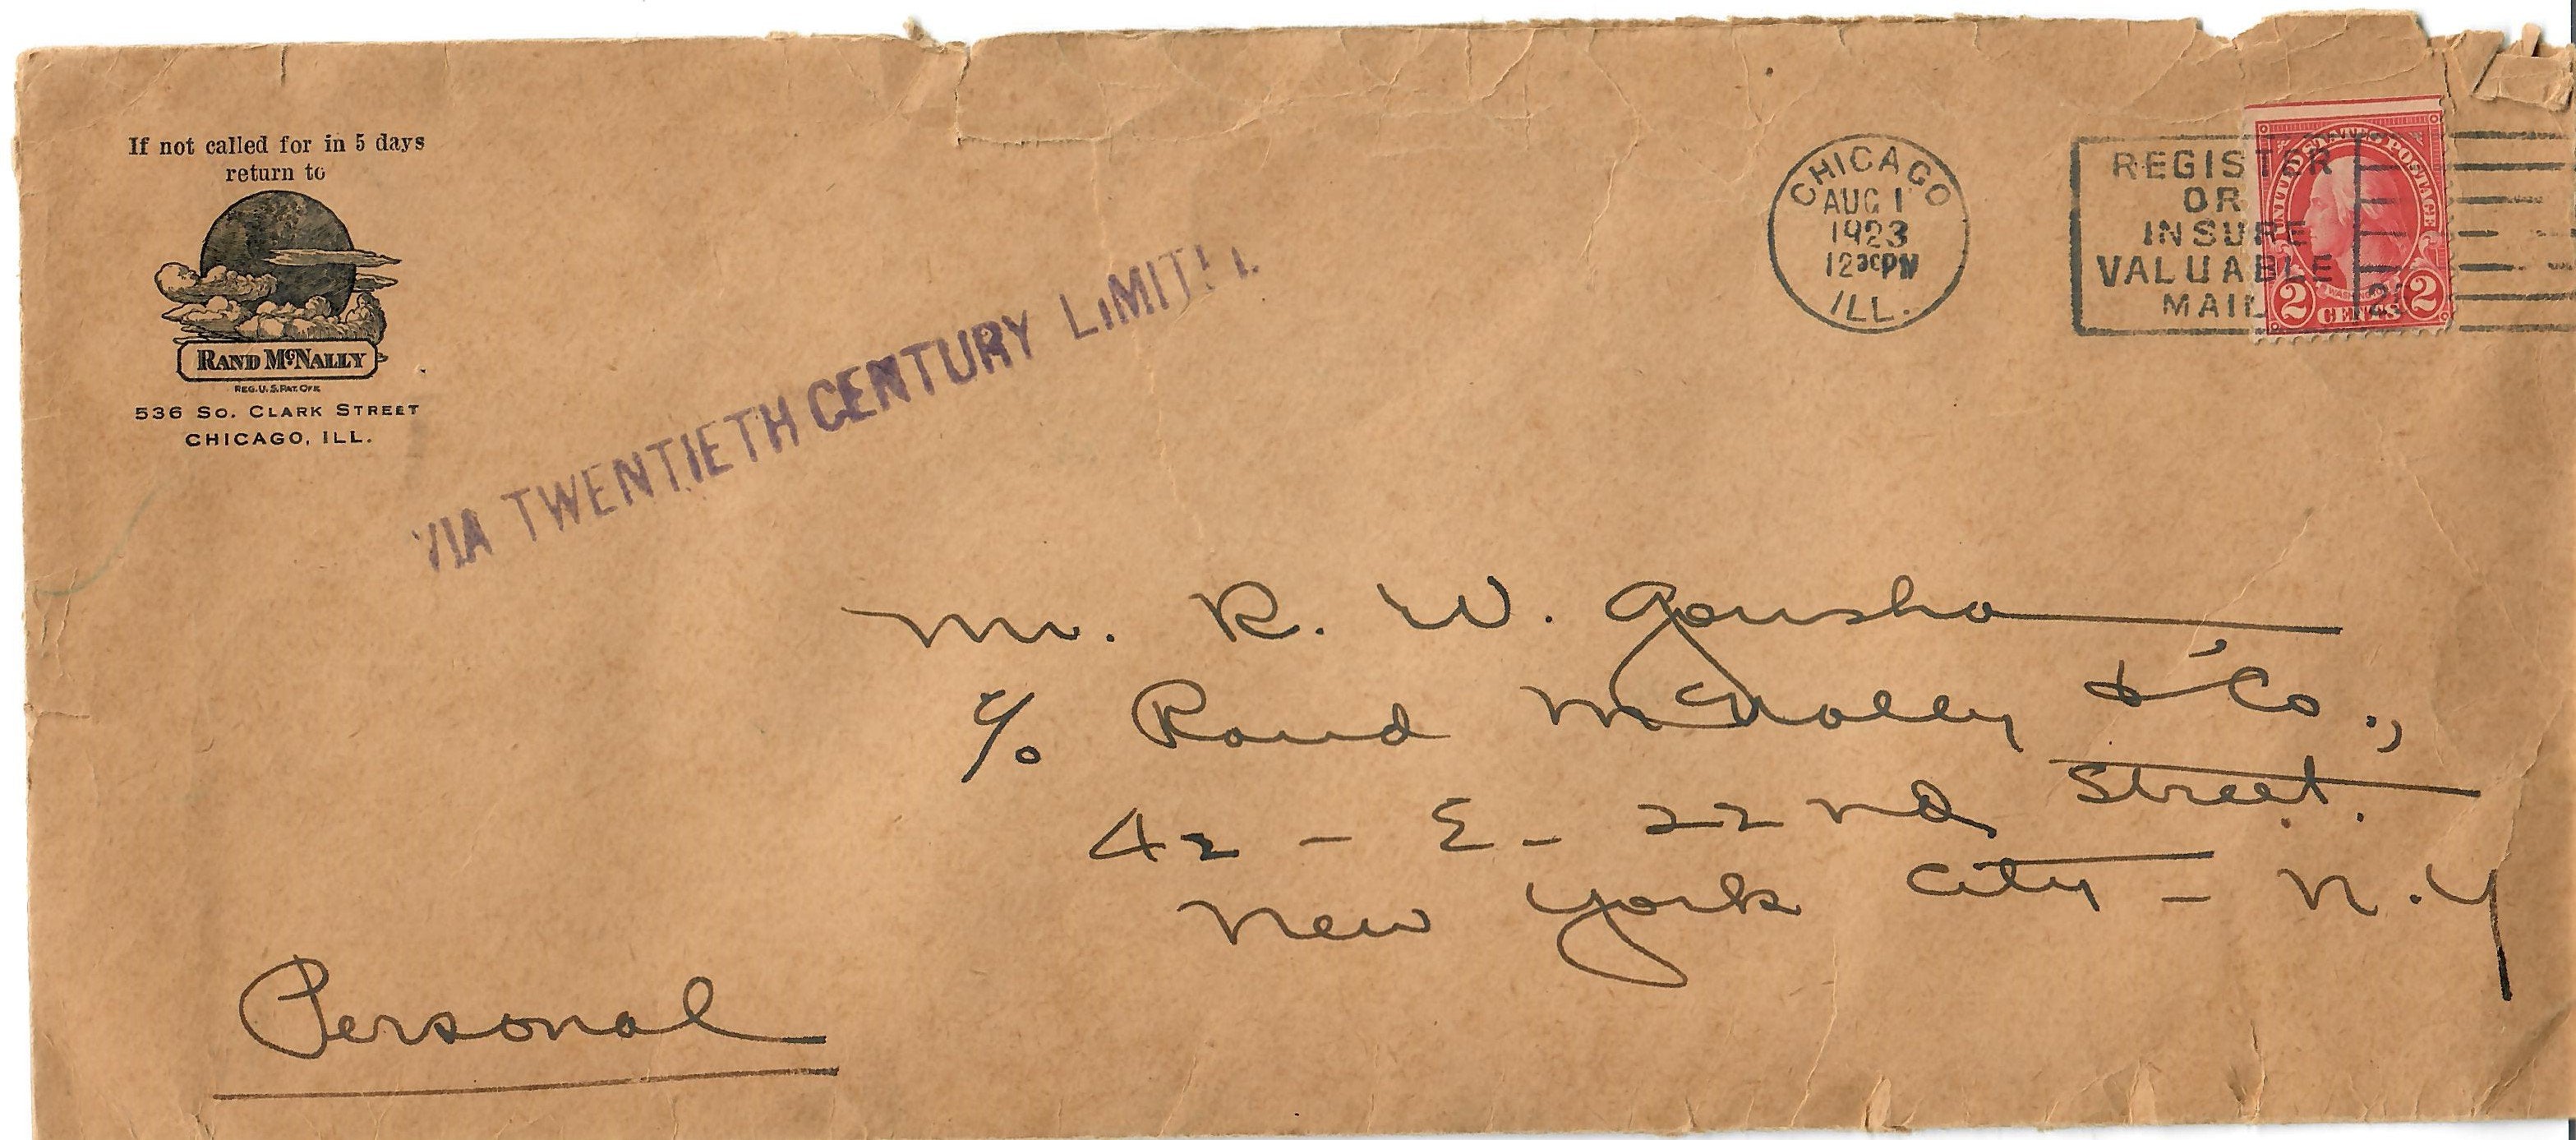 If not called for in 5 days
return to
RAND McNALLY
REG. U.S. PAT. OFF.
536 SO. CLARK STREET
CHICAGO, ILL.
VIA TWENTIETH CENTURY
CHICAGO
AUG 1
1923
12 30 PM
ILL.
REGISTER
OR
INSURE
VALUABLE
MAIL
UNITED STATES POSTAGE
2 CENTS 2
Mr. R. W. Gousha
c/o Rand McNally & Co.,
42 - E - 22nd Street.
New York City - N.Y
Personal